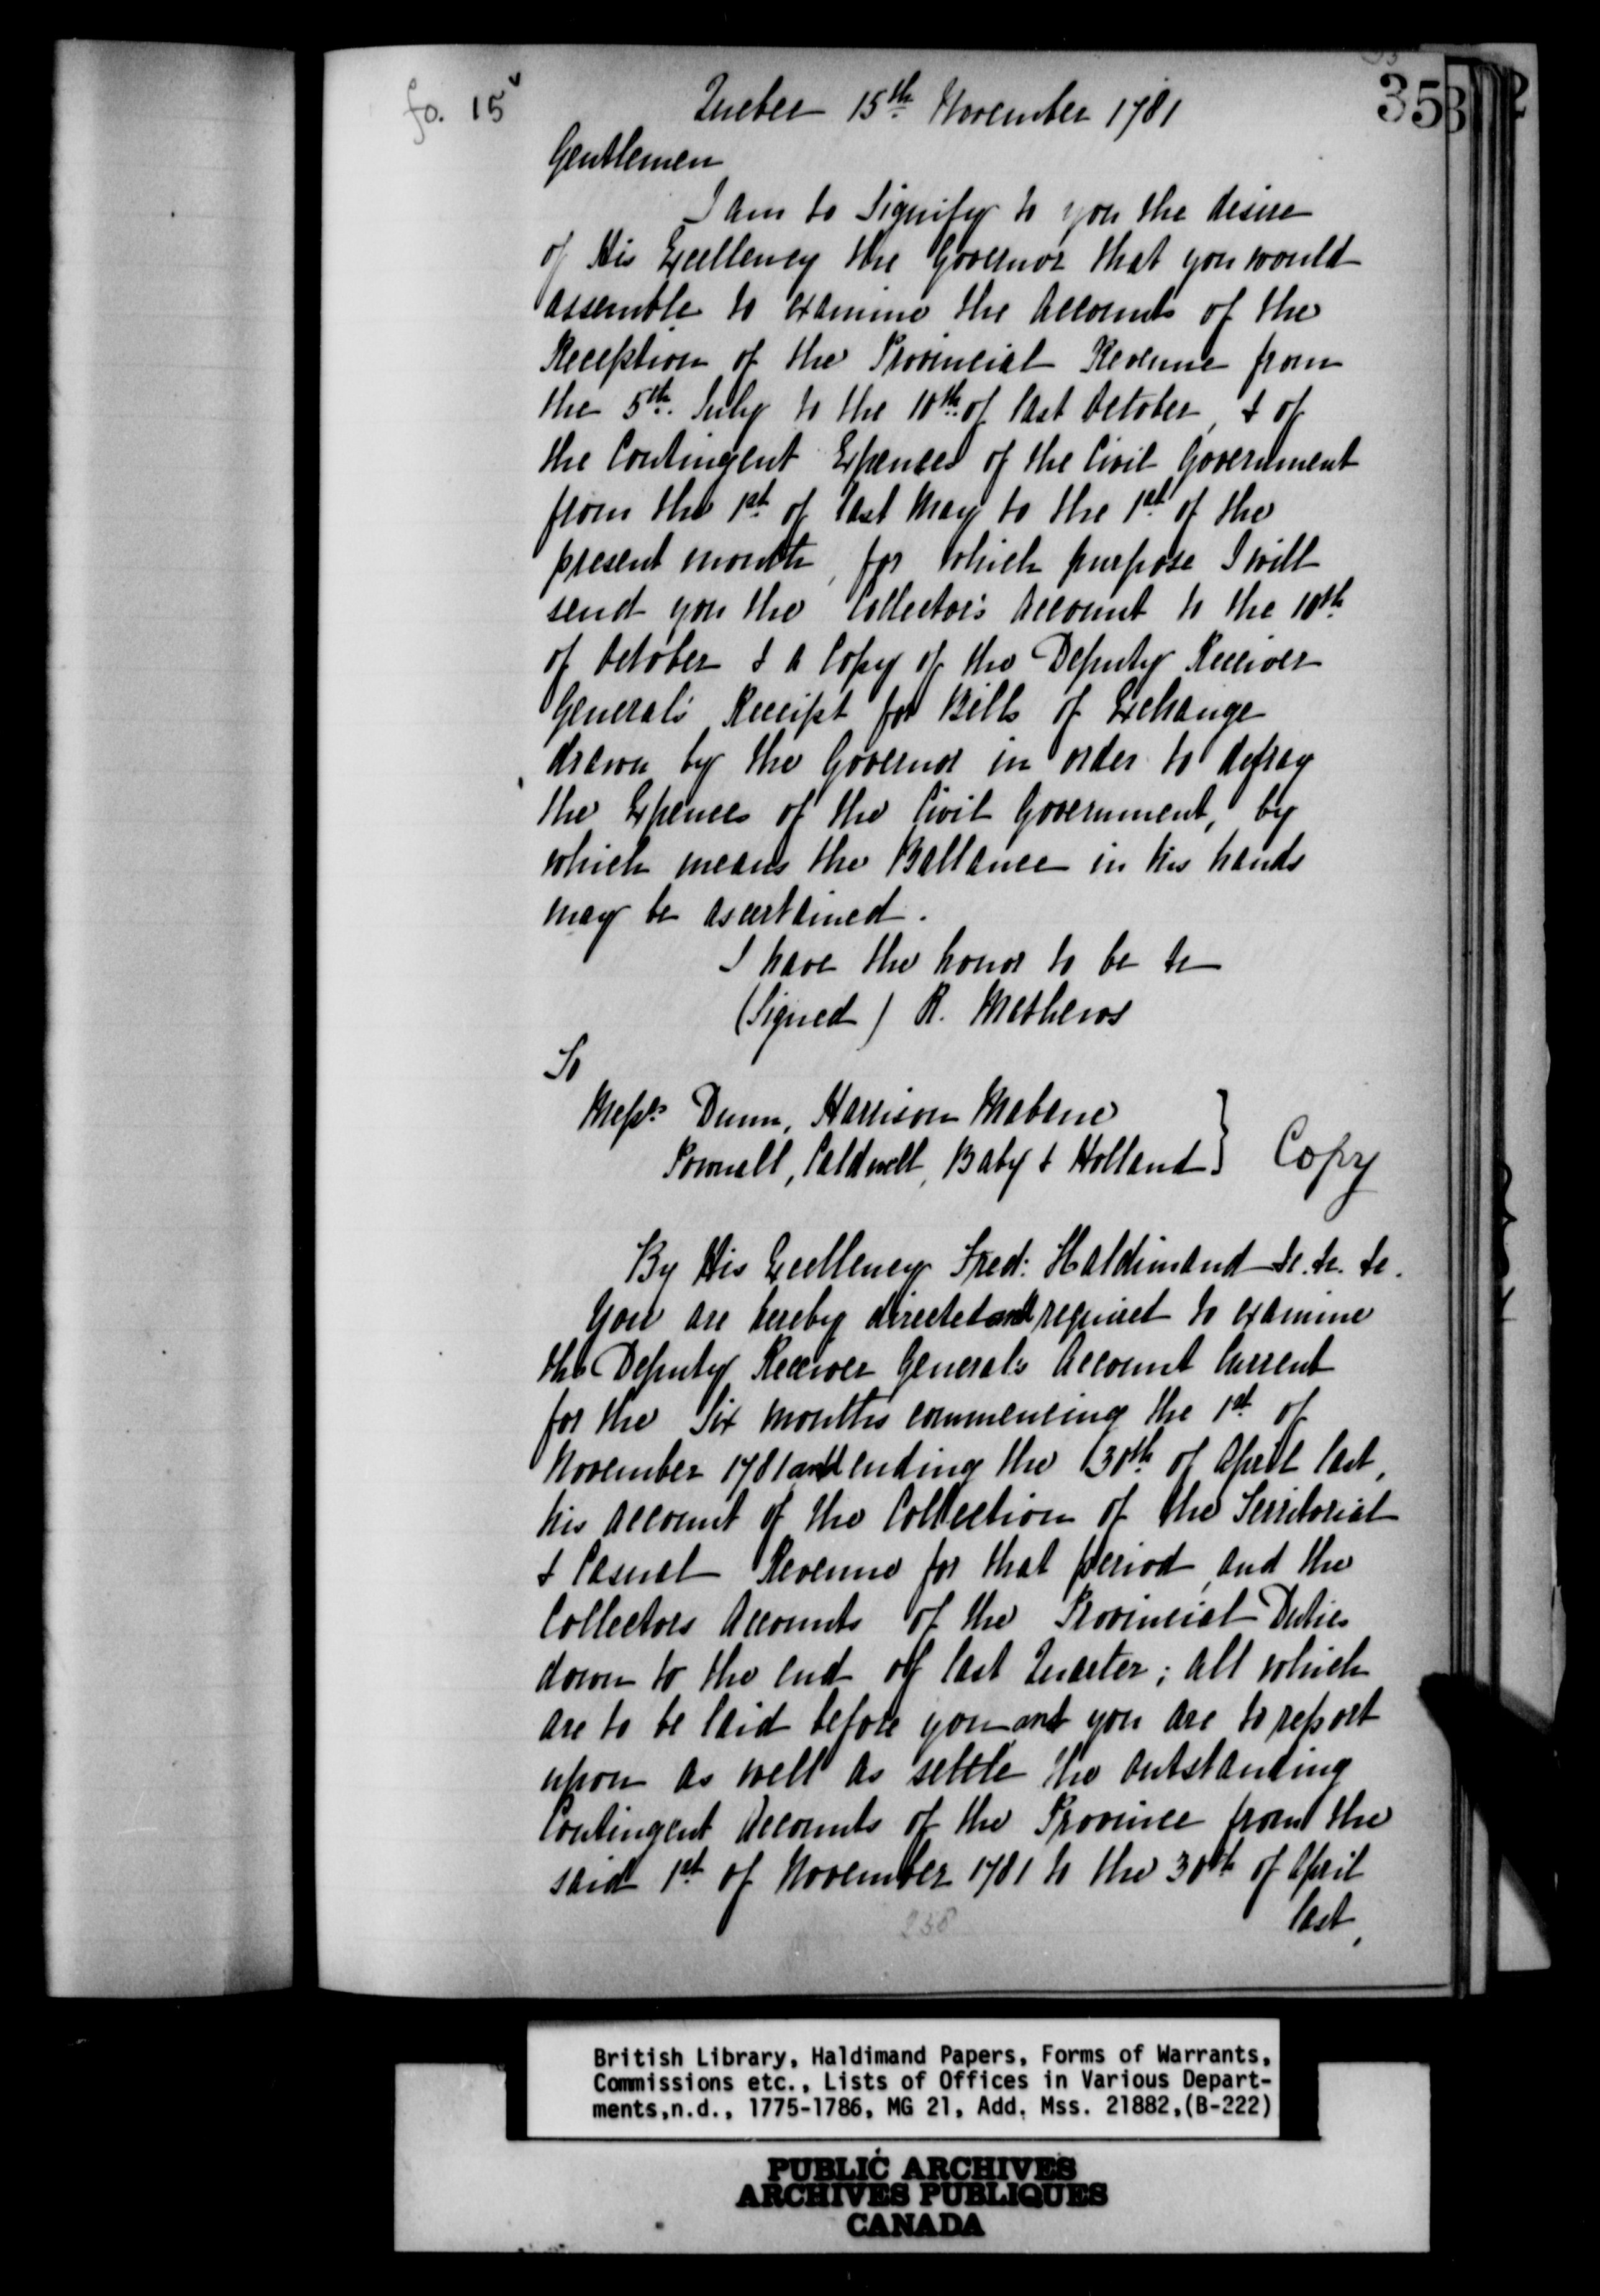 fo. 15v
353
Quebec 15th November 1781
Gentlemen
I am to Signify to you the desire
of His Excellency the Governor that you would
assemble to examine the Accounts of the
Reception of the Provincial Revenue from
the 5th. July to the 10th of last October, & of
the Contingent Expences of the Civil Government
from the 1st of last May to the 1st of the
present month, for which purpose I will
send you the Collector's Account to the 10th
of October & a Copy of the Deputy Receiver
General's Receipt for Bills of Exchange
drawn by the Governor in order to defray
the Expences of the Civil Government, by
which means the Ballance in his hands
may be ascertained.
I have the honor to be &c
(Signed) R. Mathews
To
Messrs Dunn, Harrison Mabane
Pownall, Caldwell, Baby & Holland } Copy
By His Excellency Fred: Haldimand &c. &c. &c.
You are hereby directed and required to examine
the Deputy Receiver General's Account Current
for the Six months commencing the 1st of
November 1781 and ending the 30th of April last,
his account of the Collection of the Territorial
& Casual Revenue for that period, and the
Collectors Accounts of the Provincial Duties
down to the end of last Quarter; all which
are to be laid before you and you are to report
upon as well as settle the outstanding
Contingent Accounts of the Province from the
said 1st of November 1781 to the 30th of April
last,
258
British Library, Haldimand Papers, Forms of Warrants,
Commissions etc., Lists of Offices in Various Depart-
ments,n.d., 1775-1786, MG 21, Add. Mss. 21882,(B-222)
PUBLIC ARCHIVES
ARCHIVES PUBLIQUES
CANADA